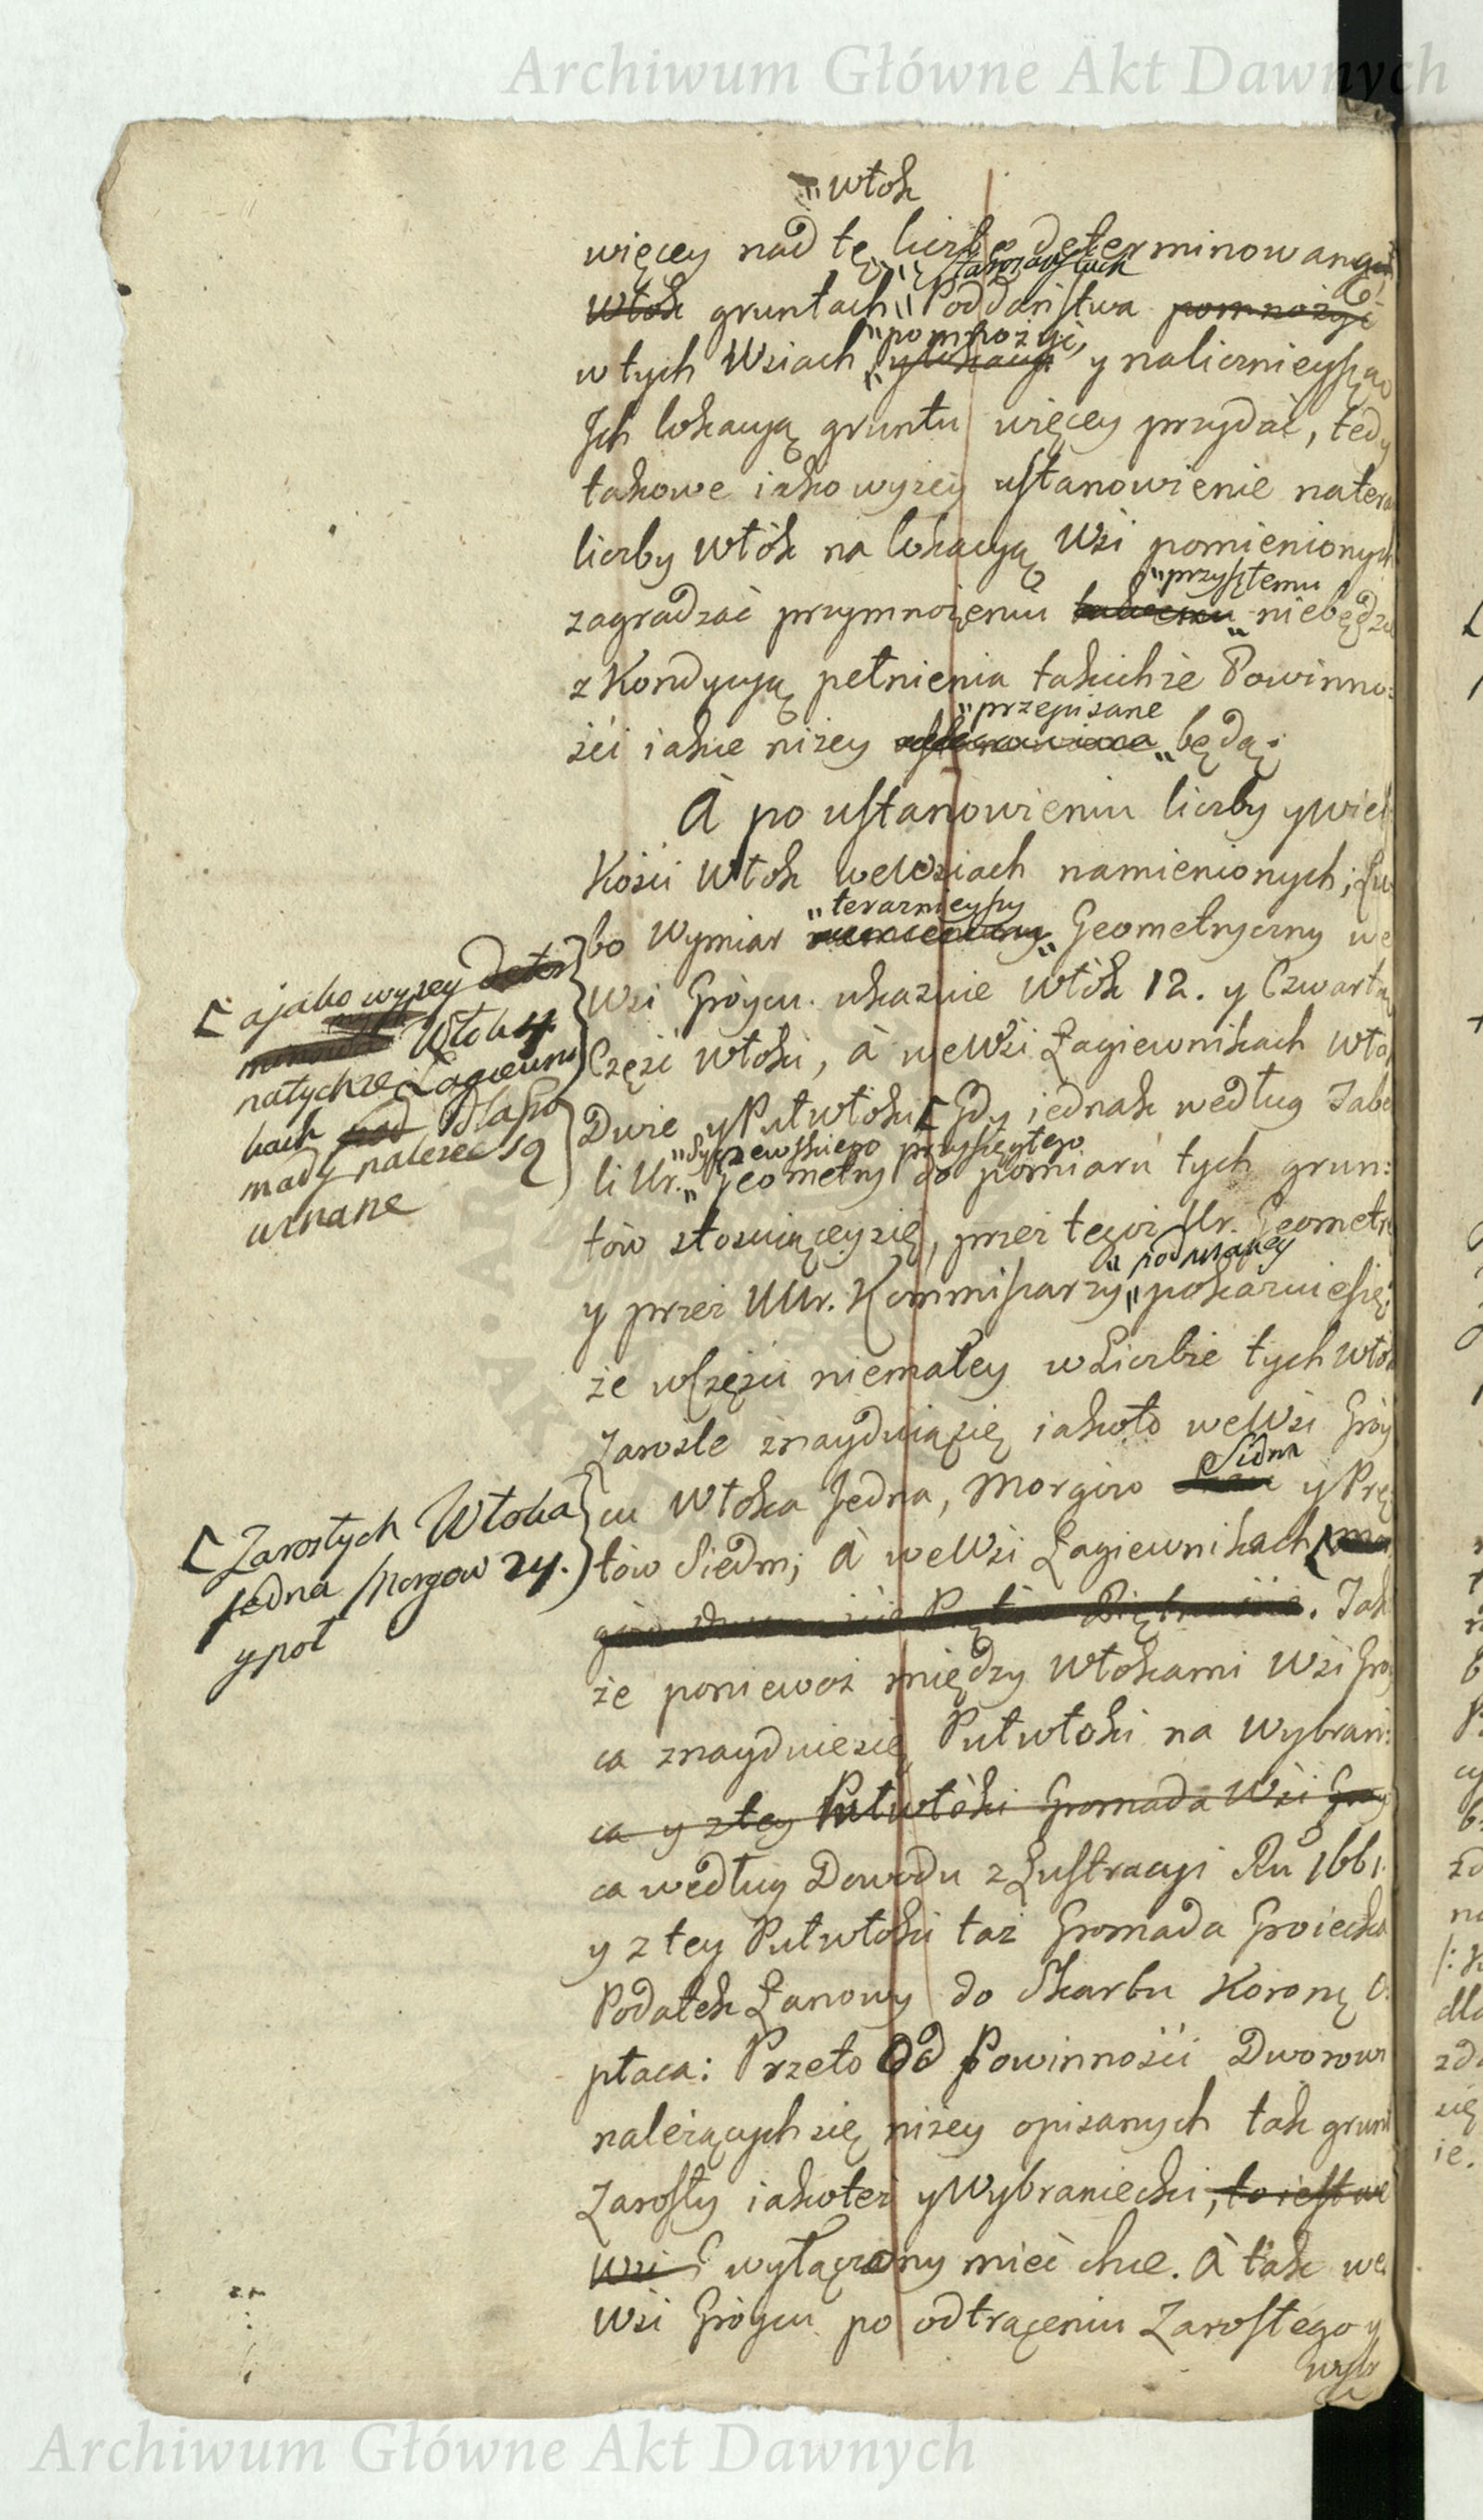 Archiwum Główne Akt Dawnych
włok
więcey nad tę liczbę determinowaną
na zarosłych
Włok gruntach Poddaństwa pomnożyć
pomnożyć,
w tych Wsiach y lokacyi y nalicznieyszą
Ich lokacyą gruntu więcey przydać, tedy
takowe iako wyzey ustanowienie natera
liczby włók na lokacyą Wsi pomienionych
przyszłemu
zagradzać przymnożeniu niebędzie
z Kondycyą pełnienia takichże Powinno:
przepisane
ści iakie niżey będą;
A po ustanowieniu liczby y wiel
kości Włok weWsiach namienionych; Lu
teraznieyszy
bo Wymiar Geometryczny we
Wsi Gróycu ukazuie Włók 12. y Czwartą
Część włoki, à weWsi Łagiewnikach Wło
Dwie y Pułwłoki [ Gdy iednak według Tabe
Syczewskiego przysięgłego
li Ur. Jeometry do pomiaru tych grun:
tów stosuiącey się, przez tegoż Ur. Geometrę
podpisaney
y przez UUr. Kommisarzy pokazuie się,
że w Części niemałey w Liczbie tych Włók
Zarosle znayduią się iakoto weWsi Gróy
Siedm
cu Włoka Jedna, Morgow y Prę
tów Siedm; à weWsi Łagiewnikach [
Pięt. Tak
że ponieważ między Włokami Wsi Gróy
ca znayduie się Pułwłoki na Wybrani:
ca y z tey Pułwłóki Gromada Wsi Gróy
ca według Dowodu z Lustracyi Ru 1661.
y z tey Pułwłoki taż Gromada Groiecka
Podatek Łanowy do Skarbu Koronę O.
płaca: Przeto Od Powinności Dworowi
należących się niżey opisanych tak grunt
Zarosły iakoteż y Wybraniecki, to iest we
Wsi wyłączony mieć chce. A tak we
Wsi Gróycu po odtrąceniu Zarosłego y
wybr
[ a jako wyzey
Włok 4
natychże Łagiewni
kach pod
mady należeć są
uznane
[ Zarosłych Włoka
Jedna Morgow 24.
y poł
Archiwum Główne Akt Dawnych